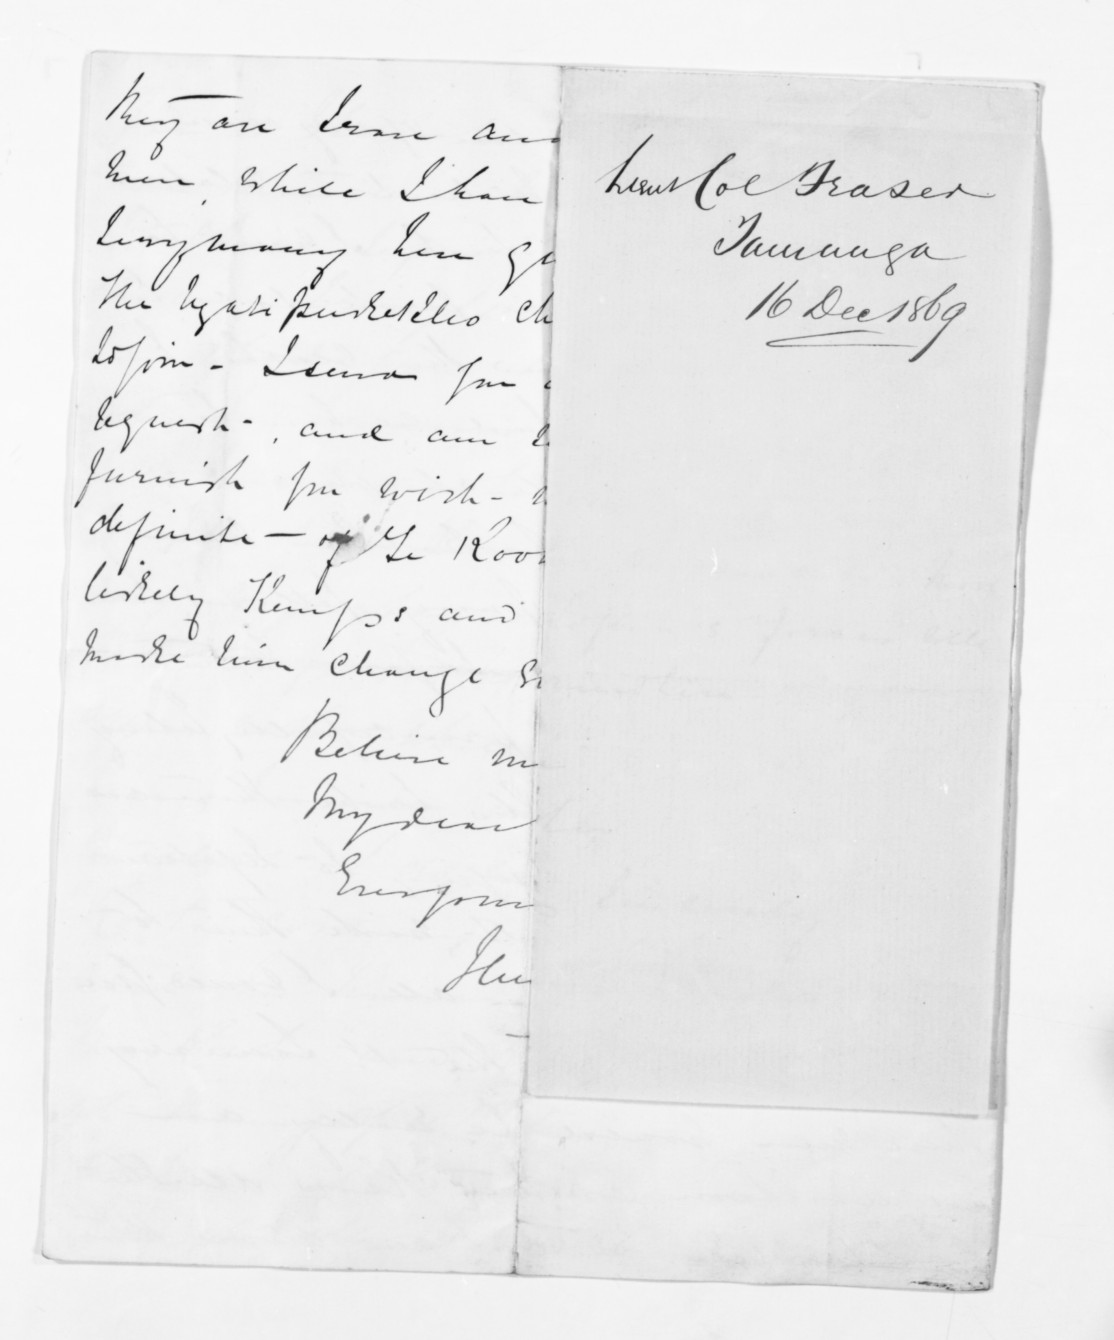 they are Irase and
men, while I have
very many here
The Ngatipukekos
to join - I send you
request -, and am
furnish you with -
definite - of Te Koo
likely Kemps and
make him change
Believe m
My dear
Ever your
Lieut Col Fraser
Tauranga
16 Dec 1869